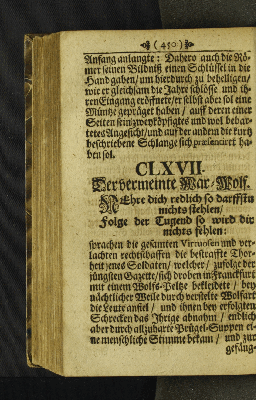 ( 450 )
Anfang anlangte: Dahero auch die Rö-
mer seinen Bildniß einen Schlüssel in die
Hand gaben/ um hierdurch zu behelligen/
wie er gleichsam die Jahre schlösse und ih-
ren Eingang eröffnete/ er selbst aber sol eine
Müntze gepräget haben / auff deren einer
Seiten sein zweyköpfigtes und wol behar-
tetes Angesicht/ und auff der andern die kurtz
beschriebene Schlange sich præsentirt ha-
ben sol.
CLXVII.
Der vermeinte Wär-Wolf.
NEhre dich redlich so darffstu
nichts stehlen/
Folge der Tugend so wird dir
nichts fehlen:
sprachen die gesamten Virtuosen und ver-
lachten rechtschaffen die bestraffte Thor-
heit jenes Soldaten/ welcher/ zufolge der
jüngsten Gazette/ sich droben in Franckfurt
mit einem Wolfs-Peltze bekleidet / bey
nächtlicher Weile durch verstelte Wolfart
die Leute anfiel / und ihnen bey erfolgten
Schrecken das Ihrige abnahm / endlich
aber durch allzuharte Prügel-Suppen ei-
ne menschliche Stimme bekam/ und zur
gefäng-